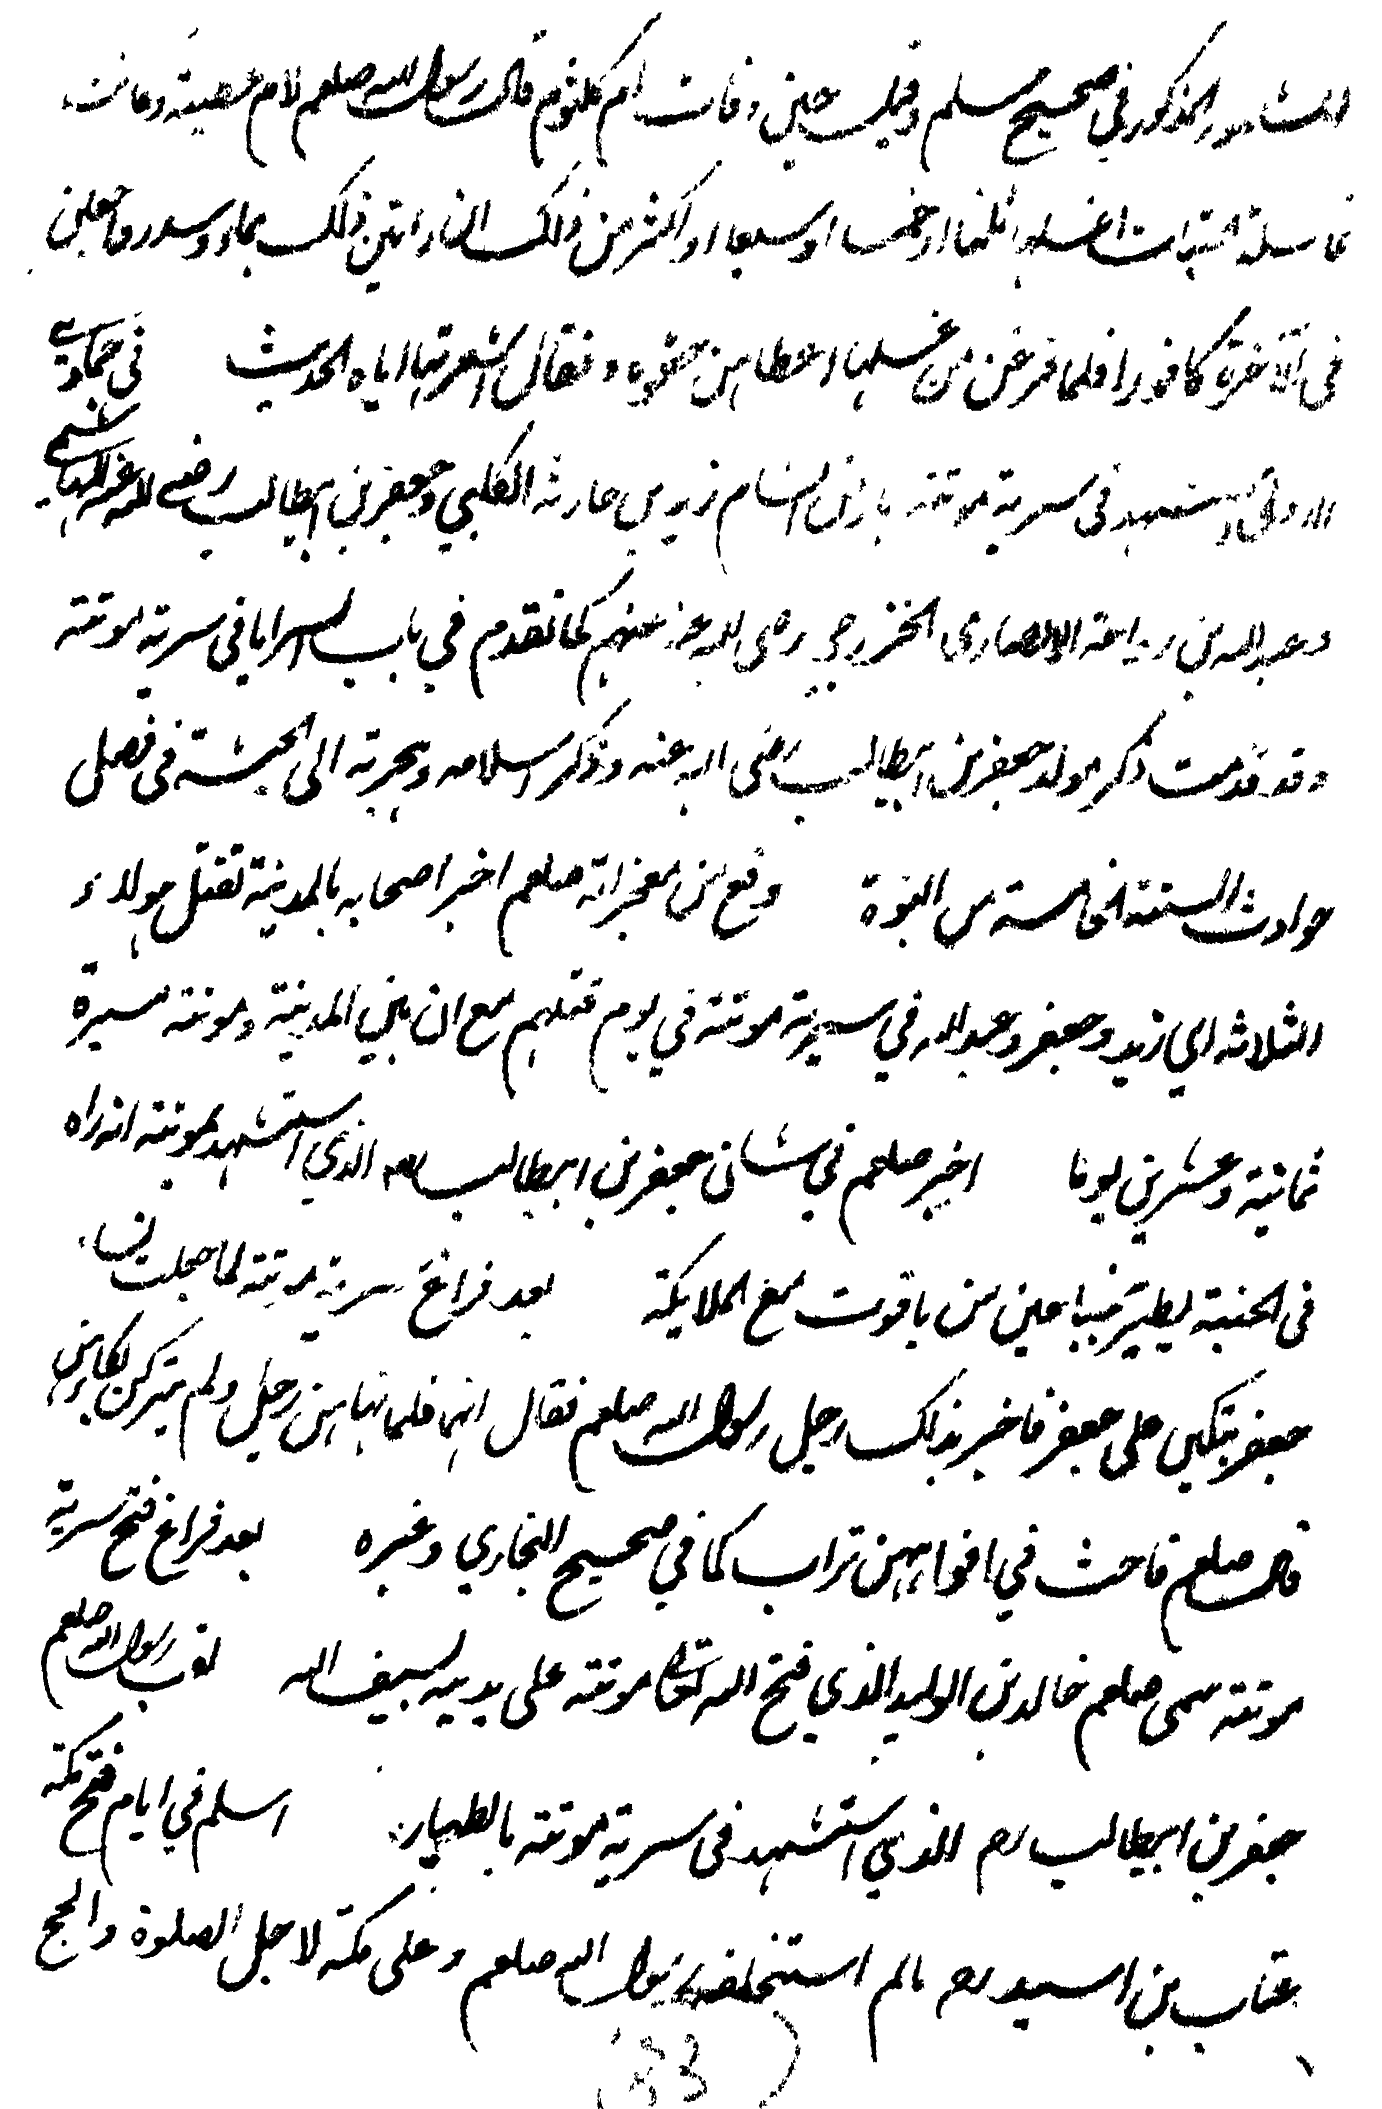 المشهور المذكور في صحيح مسلم وقيل حين وفات ام كلثوم قال رسول الله صلعم لام عطية وكانت
غاسلة الميتات اغسلنها ثلثا او خمسا او سبعا او اكثر من ذلك ان راتين ذلك بماء وسدر واجعلن
في الآخرة كافورا فلما فرغن من غسلها اعطاهن حقوه وفقال اشعرنها اياه الحديث في جمادى
الاولى استشهد في سرية موتة بارض الشام زيد بن حارثة الكلبي وجعفر بن ابيطالب رضي الله عنه الهاشمي
وعبد الله بن رواحة الانصاري الخزرجي رضي الله عنهم كما تقدم في باب السرايا في سرية موتة
وقد قدمت ذكر مولد جعفر بن ابيطالب رضي الله عنه وذكر اسلامه وهجرته الى الحبشة في فصل
حوادث السنة الخامسة من النبوة وقع من معجزاته صلعم اخبر اصحابه بالمدينة بقتل هولاء
الثلاثة اي زيد وجعفر وعبد الله في سرية موتة في يوم قتلهم مع ان بين المدينة وموتة مسيرة
ثمانية وعشرين يوما اخبر صلعم في شان جعفر بن ابيطالب الذي استشهد بموتة انه راه
في الجنة يطير بجناحين من ياقوت مع الملايكة بعد فراغ سرية موتة لما جعلت نساء
جعفر يبكين على جعفر فاخبر بذلك رجل رسول الله صلعم فقال انهما فلما نهاهن رجل ولم يتركن بكاءهن
قال صلعم فاحث في افواههن تراب كما في صحيح البخاري وغيره بعد فراغ فتح سرية
موتة سمى صلعم خالد بن الوليد الذي فتح الله تعالى موتة على يديه بسيف الله لقب رسول الله صلعم
جعفر بن ابيطالب رضـ الذي استشهد في سرية موتة بالطيار اسلم في ايام فتح مكة
عتاب بن اسيد رضـ بالم استخلفه رسول الله صلعم وعلى مكة لاجل الصلوة والحج